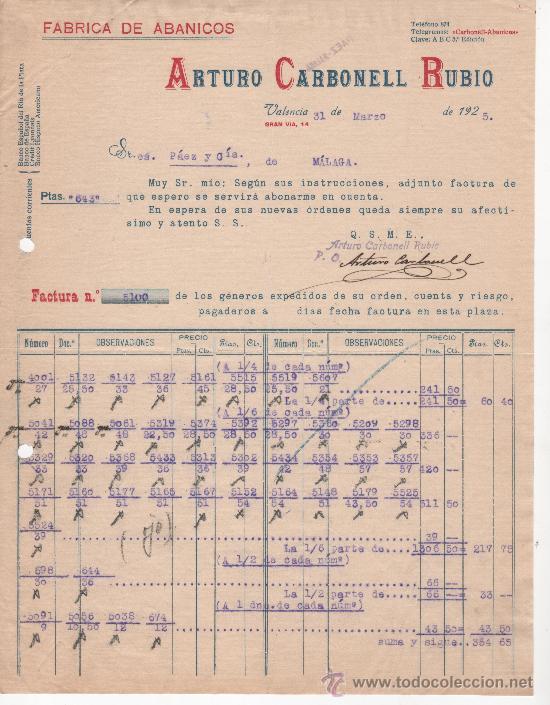 FABRICA DE ABANICOS
Teléfono 871
Telegramas: «Carbonell-Abanicos»
Clave: A B C 5.ª Edición
ARTURO CARBONELL RUBIO
Valencia 31 de Marzo de 1925.
GRAN VIA, 14
Banco Español del Río de la Plata
Banco de España
Credit Lyonnais
Banco Hispano Americano
uentas corrientes
Sr.es. Páez y Cía. de MÁLAGA.
Muy Sr. mío: Según sus instrucciones, adjunto factura de
Ptas. "643" que espero se servirá abonarme en cuenta.
En espera de sus nuevas órdenes queda siempre su afectí-
simo y atento S. S.
Q. S. M. E.,
Arturo Carbonell Rubio
P. O.
Arturo Carbonell
Factura n.º 5100 de los géneros expedidos de su orden, cuenta y riesgo,
pagaderos a días fecha factura en esta plaza.
Número Dnc.ª OBSERVACIONES PRECIO Ptas. Cts. Ptas. Cts. Número Dnc.ª OBSERVACIONES PRECIO Ptas. Cts. Ptas. Cts.
(A 1/4 de cada núm°)
4001 5132 5143 5127 5161 5515 5519 5607
27 28,50 33 36 45 28,50 21 241 50
La 1/4 parte de 241 50= 60 40
(A 1/6 de cada núm°)
5041 5088 5061 5319 5374 5392 5297 5380 5209 5298
42 48 48 22,50 28,50 28,50 28,50 30 30 30 336 --
5329 5320 5368 5433 5313 5302 5434 5354 5353 5357
33 33 39 36 39 48 42 48 57 57 420 --
5171 5160 5177 5165 5167 5152 5164 5148 5179 5525
51 51 51 51 51 54 54 51 43,50 54 511 50
5524
39 39 --
La 1/6 parte de 1306 50= 217 75
(A 1/2 de cada núm°)
598 644
30 36 66 --
La 1/2 parte de 66 --= 33 --
(A 1 dna. de cada núm°)
5091 5056 5038 674
9 10,50 12 12 43 50= 43 50
suma y sigue 354 65
todocoleccion.net